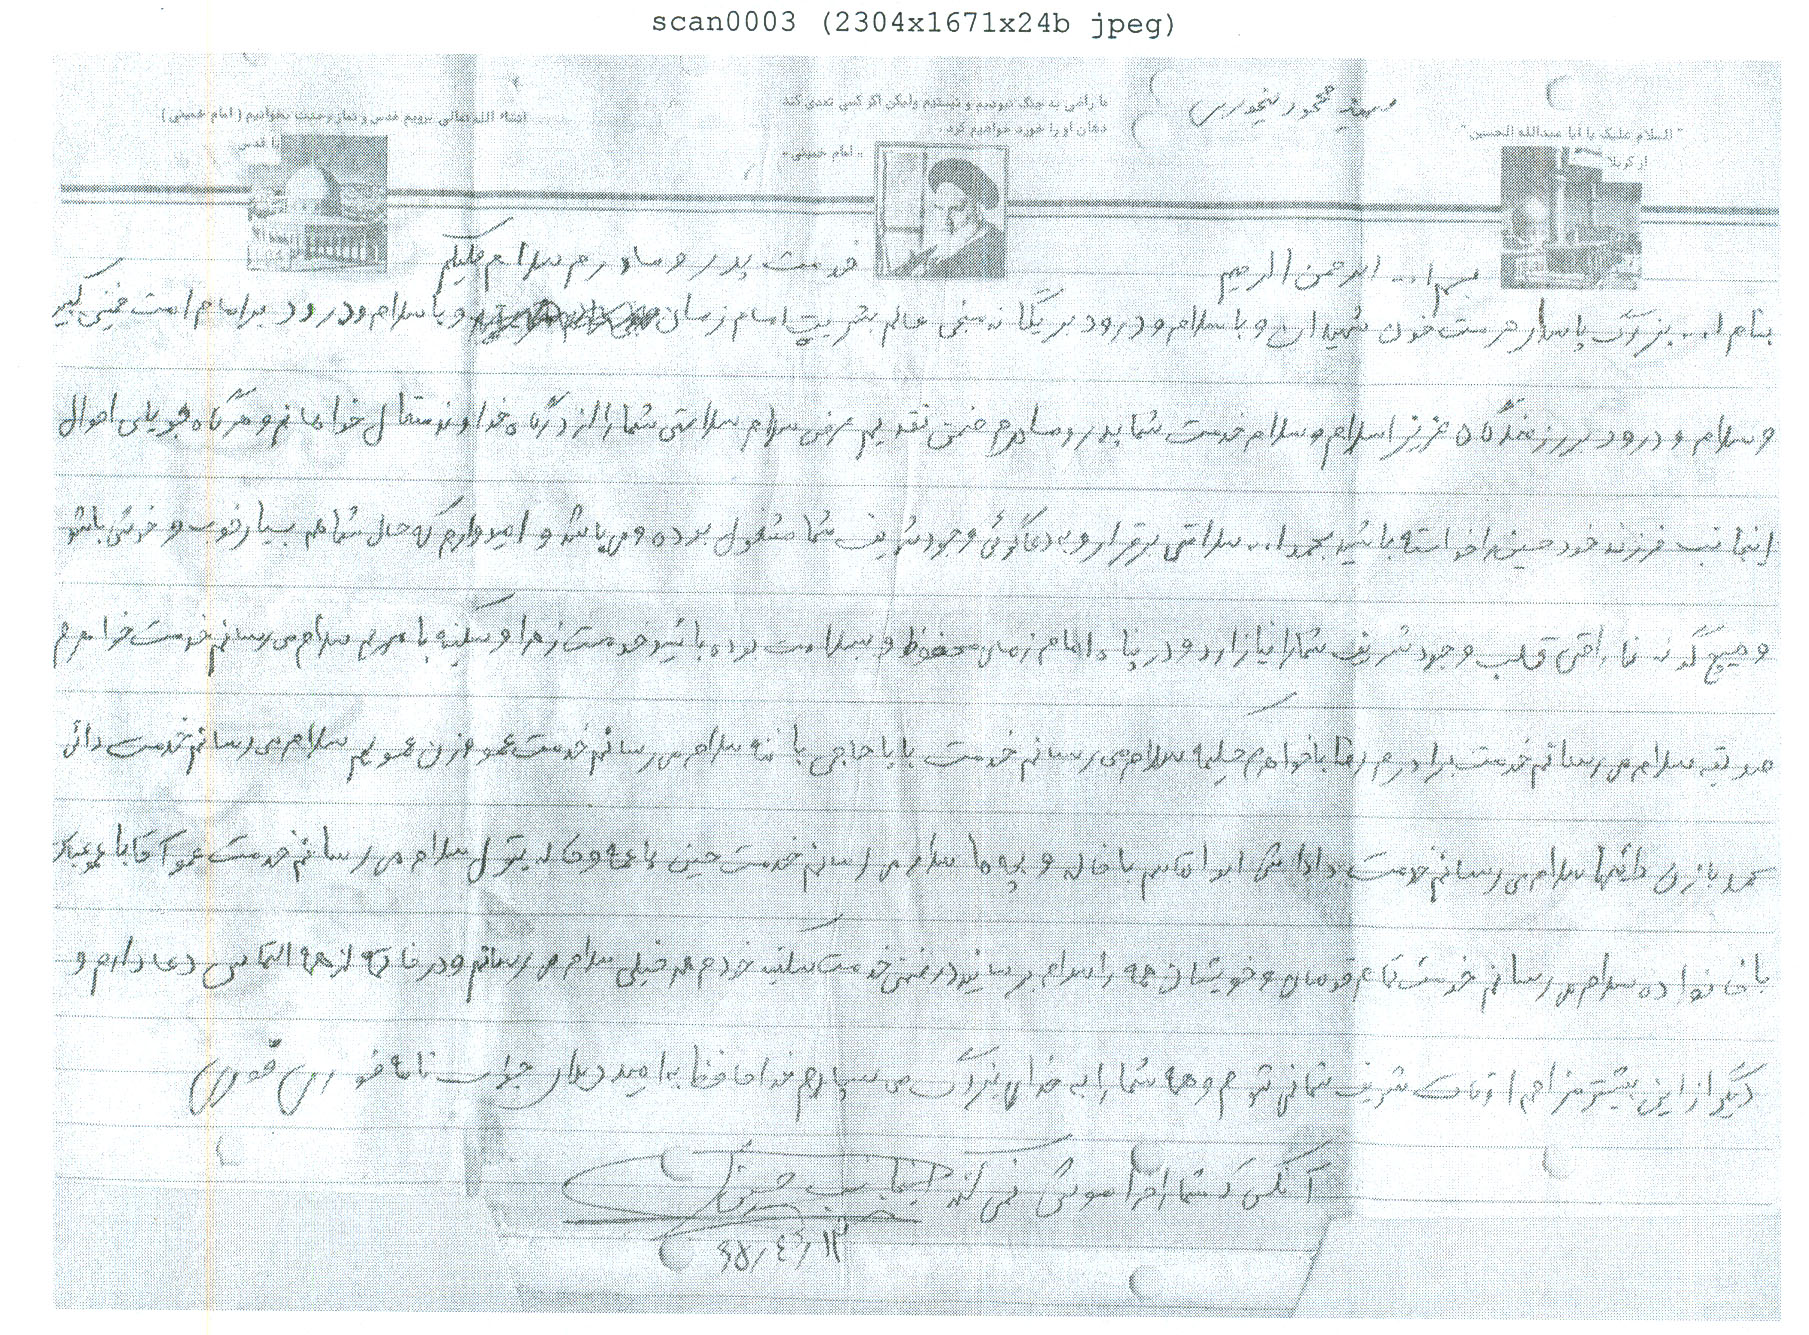 scan0003 (2304x1671x24b jpeg)
شهید محمود
"السلام علیک یا ابا عبدالله الحسین"
از کربلا
ما راضی به جنگ نبودیم و نیستیم ولیکن اگر کسی تعدی کند
دهان او را خورد خواهیم کرد.
- امام خمینی -
انشاء الله تعالی برویم قدس و نماز وحدت بخوانیم (امام خمینی)
تا قدس
بسم ا... الرحمن الرحیم
خدمت پدر و مادرم سلام علیکم
بنام ا... بزرگ پاسدار حرمت خون شهیدان و با سلام و درود بر یگانه منجی عالم بشریت امام زمان و با سلام و درود بر امام امت خمینی کبیر
و سلام و درود بر رزمندگان عزیز اسلام و سلام خدمت شما پدر و مادرم ضمن تقدیم عرض سلام سلامتی شما را از درگاه خداوند متعال خواهانم و هرگاه جویای احوال
اینجانب فرزند خود حسین را خواسته باشید بحمدا... سلامتی برقرار و به دعاگوئی وجود شریف شما مشغول بوده و می باشم و امیدوارم که حال شما هم بسیار خوب و خوش باشد
و هیچ گونه ناراحتی قلب وجود شریف شما را نیازارد و در پناه امام زمان محفوظ و سلامت بوده باشید خدمت زهرا و سکینه با مریم سلام می رسانم خدمت خواهرم
صدیقه سلام می رسانم خدمت برادرم رضا با خواهرم حلیمه سلام می رسانم خدمت بابا حاجی با ننه سلام می رسانم خدمت عمو و زن عمویم سلام می رسانم خدمت دائی
محمد با زن دائیها سلام می رسانم خدمت داداش ابوالقاسم با خاله و بچه ها سلام می رسانم خدمت حسین با عمه و خاله بتول سلام می رسانم خدمت عمو آقا با عمو
با خانواده سلام می رسانم خدمت تمام قومان و خویشان همه را سلام برسانید در ضمن خدمت سکینه خودم هم خیلی سلام می رسانم و در خاتمه از همه التماس دعا دارم و
دیگر از این بیشتر مزاحم اوقات شریف شما نمی شوم و همه شما را به خدای بزرگ می سپارم خداحافظ به امید دیدار جواب نامه فوری فوری
آنکس که شما را فراموش نمی کند اینجانب حسین
۶۵/۴/۱۳